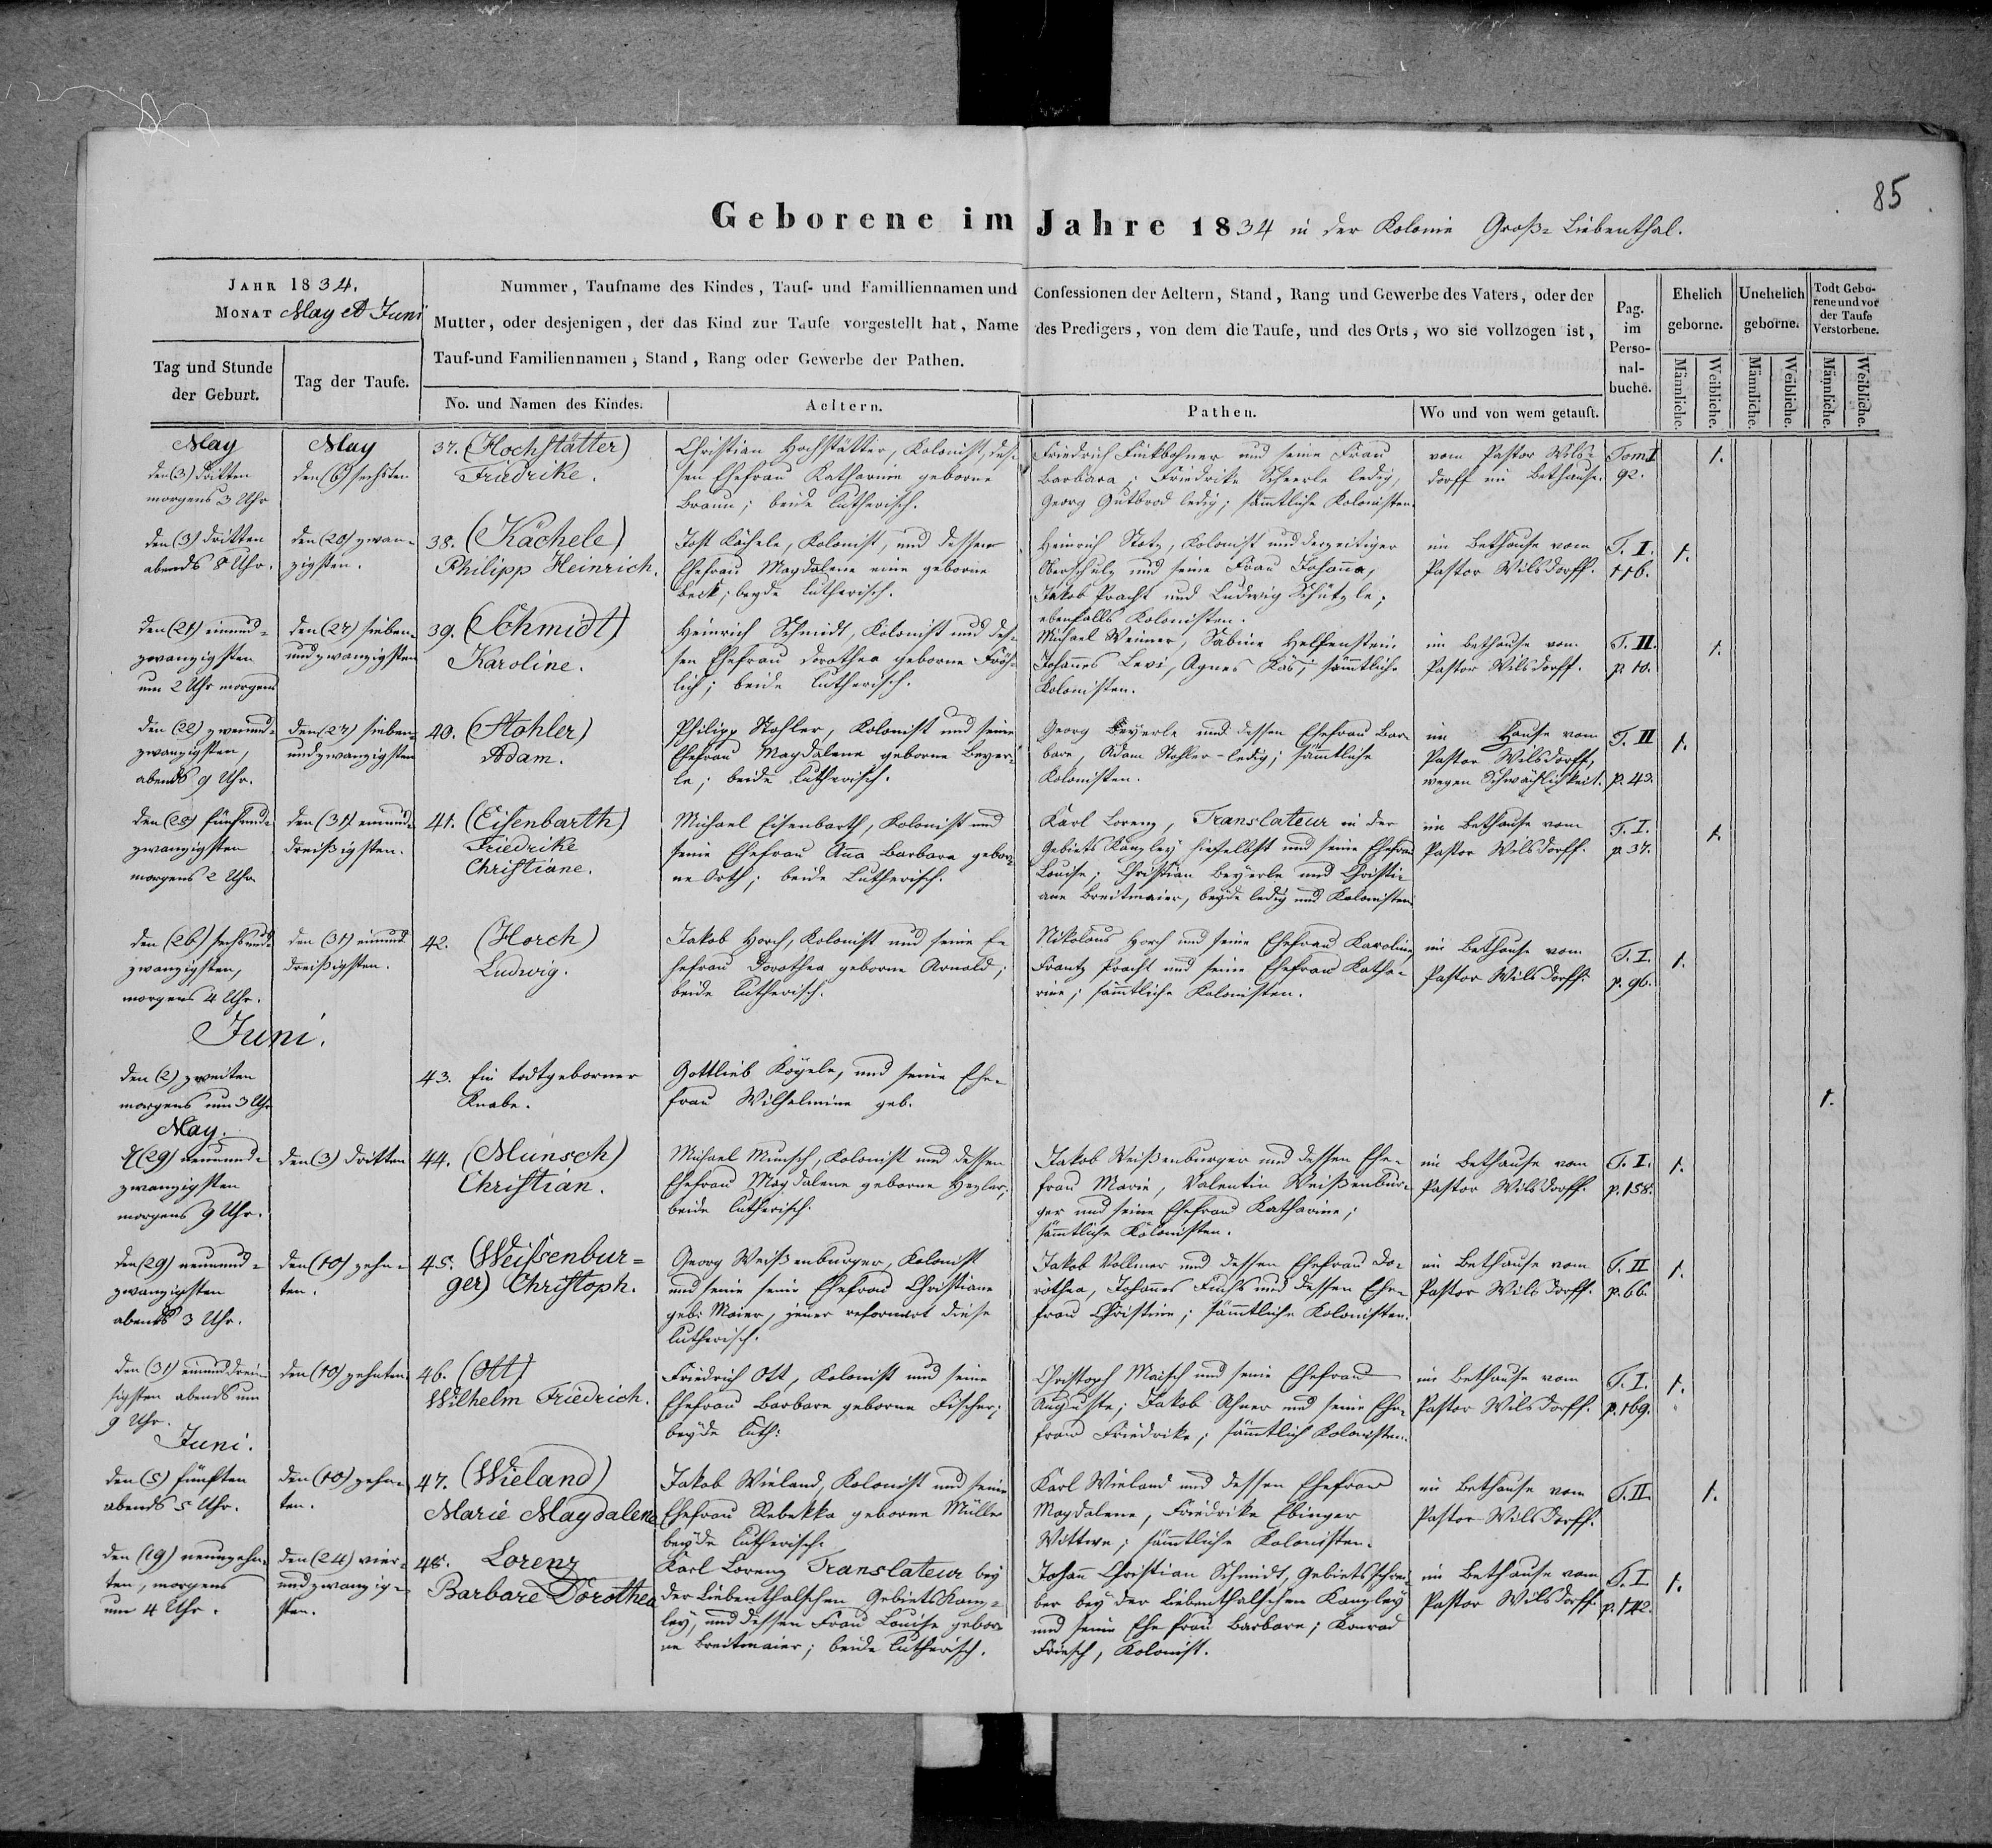 85
Geborene im Jahre 1834 in der Kolonie Groß= Liebenthal.
JAHR 1834.
MONAT May et Juni
Nummer, Taufname des Kindes, Tauf- und Familliennamen und
Mutter, oder desjenigen, der das Kind zur Taufe vorgestellt hat, Name
Tauf-und Familiennamen, Stand, Rang oder Gewerbe der Pathen.
Confessionen der Aeltern, Stand, Rang und Gewerbe des Vaters, oder der
des Predigers, von dem die Taufe, und des Orts, wo sie vollzogen ist,
Pag.
im
Perso-
nal-
buche.
Ehelich
geborne.
Unehelich
geborne.
Todt Gebo-
rene und vor
der Taufe
Verstorbene.
Tag und Stunde
der Geburt.
Tag der Taufe.
No. und Namen des Kindes.
Aeltern.
Pathen.
Wo und von wem getauft.
Männliche.
Weibliche.
Männliche.
Weibliche.
Männliche.
Weibliche.
May
den (3) dritten
morgens 3 Uhr
May
den (6) sechsten
37. (Hochstätter)
Friedrike.
Christian Hochstätter, Kolonist, des-
sen Ehefrau Katharine geborne
Braun; beide lutherisch.
Friedrich Finkbohner und seine Frau
Barbara; Friedrike Scheerle ledig,
Georg Gutbrod ledig; sämtliche Kolonisten.
vom Pastor Wils-
dorff im Bethause.
Tom I
92.
1.
den (3) dritten
abends 8 Uhr.
den (20) zwan-
zigsten.
38. (Kächele)
Philipp Heinrich.
Jost Kächele, Kolonist, und dessen
Ehefrau Magdalene eine geborne
Beck; beyde lutherisch.
Heinrich Stotz, Kolonist und derzeitiger
Oberschulz und seine Frau Johanna,
Jakob Pracht und Ludwig Schützle;
ebenfalls Kolonisten.
im Bethause vom
Pastor Wilsdorff.
T. I.
116.
1.
den (21) einund-
zwanzigsten
um 2 Uhr morgens
den (27) sieben-
undzwanzigsten
39. (Schmidt)
Karoline.
Heinrich Schmidt, Kolonist und des-
sen Ehefrau Dorothea geborne Fröh-
lich; beide lutherisch.
Michael Weimer, Sabine Helfenstein
Johannes Levi, Agnes Käs; sämtliche
Kolonisten.
im Bethause vom
Pastor Wilsdorff.
T. II.
p. 10.
1.
den (22) zweiund-
zwanzigsten,
abends 9 Uhr.
den (27) sieben-
undzwanzigsten
40. (Stohler)
Adam.
Philipp Stohler, Kolonist und seine
Ehefrau Magdalene geborne Beyer-
le; beide lutherisch.
Georg Beyerle und dessen Ehefrau Bar-
bare, Adam Stohler - ledig; sämtliche
Kolonisten.
im Hause vom
Pastor Wilsdorff,
wegen Schwächlichkeit.
T. II
p. 43.
1.
den (25) fünfund-
zwanzigsten
morgens 2 Uhr
den (31) einund-
dreißigsten.
41. (Eisenbarth)
Friedrike
Christiane.
Michael Eisenbarth, Kolonist und
seine Ehefrau Anna Barbara gebor-
ne Orth; beide Lutherisch.
Karl Lorenz, Translateur in der
Gebiets Kanzley hieselbst und seine Ehefrau
Louise; Christian Beyerle und Christi-
ane Breitmaier, beyde ledig und Kolonisten
im Bethause vom
Pastor Wilsdorff.
T. I.
p. 37.
1.
den (26) sechsund-
zwanzigsten,
morgens 4 Uhr.
den (31) einund
dreißigsten.
42. (Horch)
Ludwig.
Jakob Horch, Kolonist und seine E-
hefrau Dorothea geborne Arnold;
beide lutherisch.
Nikolaus Horch und seine Ehefrau Karoline,
Frantz Pracht und seine Ehefrau Katha-
rine; sämtliche Kolonisten.
im Bethause vom
Pastor Wilsdorff.
T. I.
p. 96.
1.
Juni.
den (2) zweiten
morgens um 3 Uhr
43. Ein todtgeborner
Knabe.
Gottlieb Kögele, und seine Ehe-
frau Wilhelmine geb.
1.
May.
d (29) neunund-
zwanzigsten
morgens 9 Uhr.
den (3) dritten
44. (Munsch)
Christian.
Michael Munsch, Kolonist und dessen
Ehefrau Magdalene geborne Hezler;
beide lutherisch.
Jakob Weißenburger und dessen Ehe-
frau Marie, Valentin Weißenbur-
ger und seine Ehefrau Katharine;
sämtliche Kolonisten.
im Bethause vom
Pastor Wilsdorff.
T. I.
p. 158.
1.
den (29) neunund-
zwanzigsten
abends 3 Uhr.
den (10) zehn-
ten.
45. (Weißenbur=
ger) Christoph.
Georg Weißenburger, Kolonist
und seine seine Ehefrau Christiane
geb. Maier, jener reformirt diese
lutherisch.
Jakob Vollmer und dessen Ehefrau Do-
rothea, Johannes Fuchs und dessen Ehe-
frau Christine; sämtliche Kolonisten.
im Bethause vom
Pastor Wilsdorff.
T. II
p. 66.
1.
den (31) einunddrei-
sigsten abends um
9 Uhr.
den (10) zehnten
46. (Ott)
Wilhelm Friedrich.
Friedrich Ott, Kolonist und seine
Ehefrau Barbare geborne Fischer;
beyde luth:
Christoph Maisch und seine Ehefrau
Auguste; Jakob Ahner und seine Ehe-
frau Friedrike; sämtlich Kolonisten.
im Bethause vom
Pastor Wilsdorff.
T. I.
p. 169.
1.
Juni.
den (5) fünften
abends 5 Uhr.
den (10) zehn-
ten.
47. (Wieland)
Marie Magdalene
Jakob Wieland, Kolonist und seine
Ehefrau Rebekka geborne Müller
beyde lutherisch.
Karl Wieland und dessen Ehefrau
Magdalene, Friedrike Ebinger
Wittwe; sämtliche Kolonisten.
im Bethause vom
Pastor Wilsdorff.
T. II.
1.
den (19) neunzehn-
ten, morgens
um 4 Uhr.
den (24) vier-
undzwanzig-
sten.
48. Lorenz
Barbare Dorothea
Karl Lorenz Translateur bey
der Liebenthalschen Gebiets Kanz-
ley, und dessen Frau Louise gebor-
ne Breitmaier; beide lutherisch.
Johann Christian Schmidt, Gebietsschrei-
ber bey der Liebenthalschen Kanzley
und seine Ehefrau Barbare; Konrad
Friesch, Kolonist.
im Bethause vom
Pastor Wilsdorff.
T. I.
p. 142.
1.